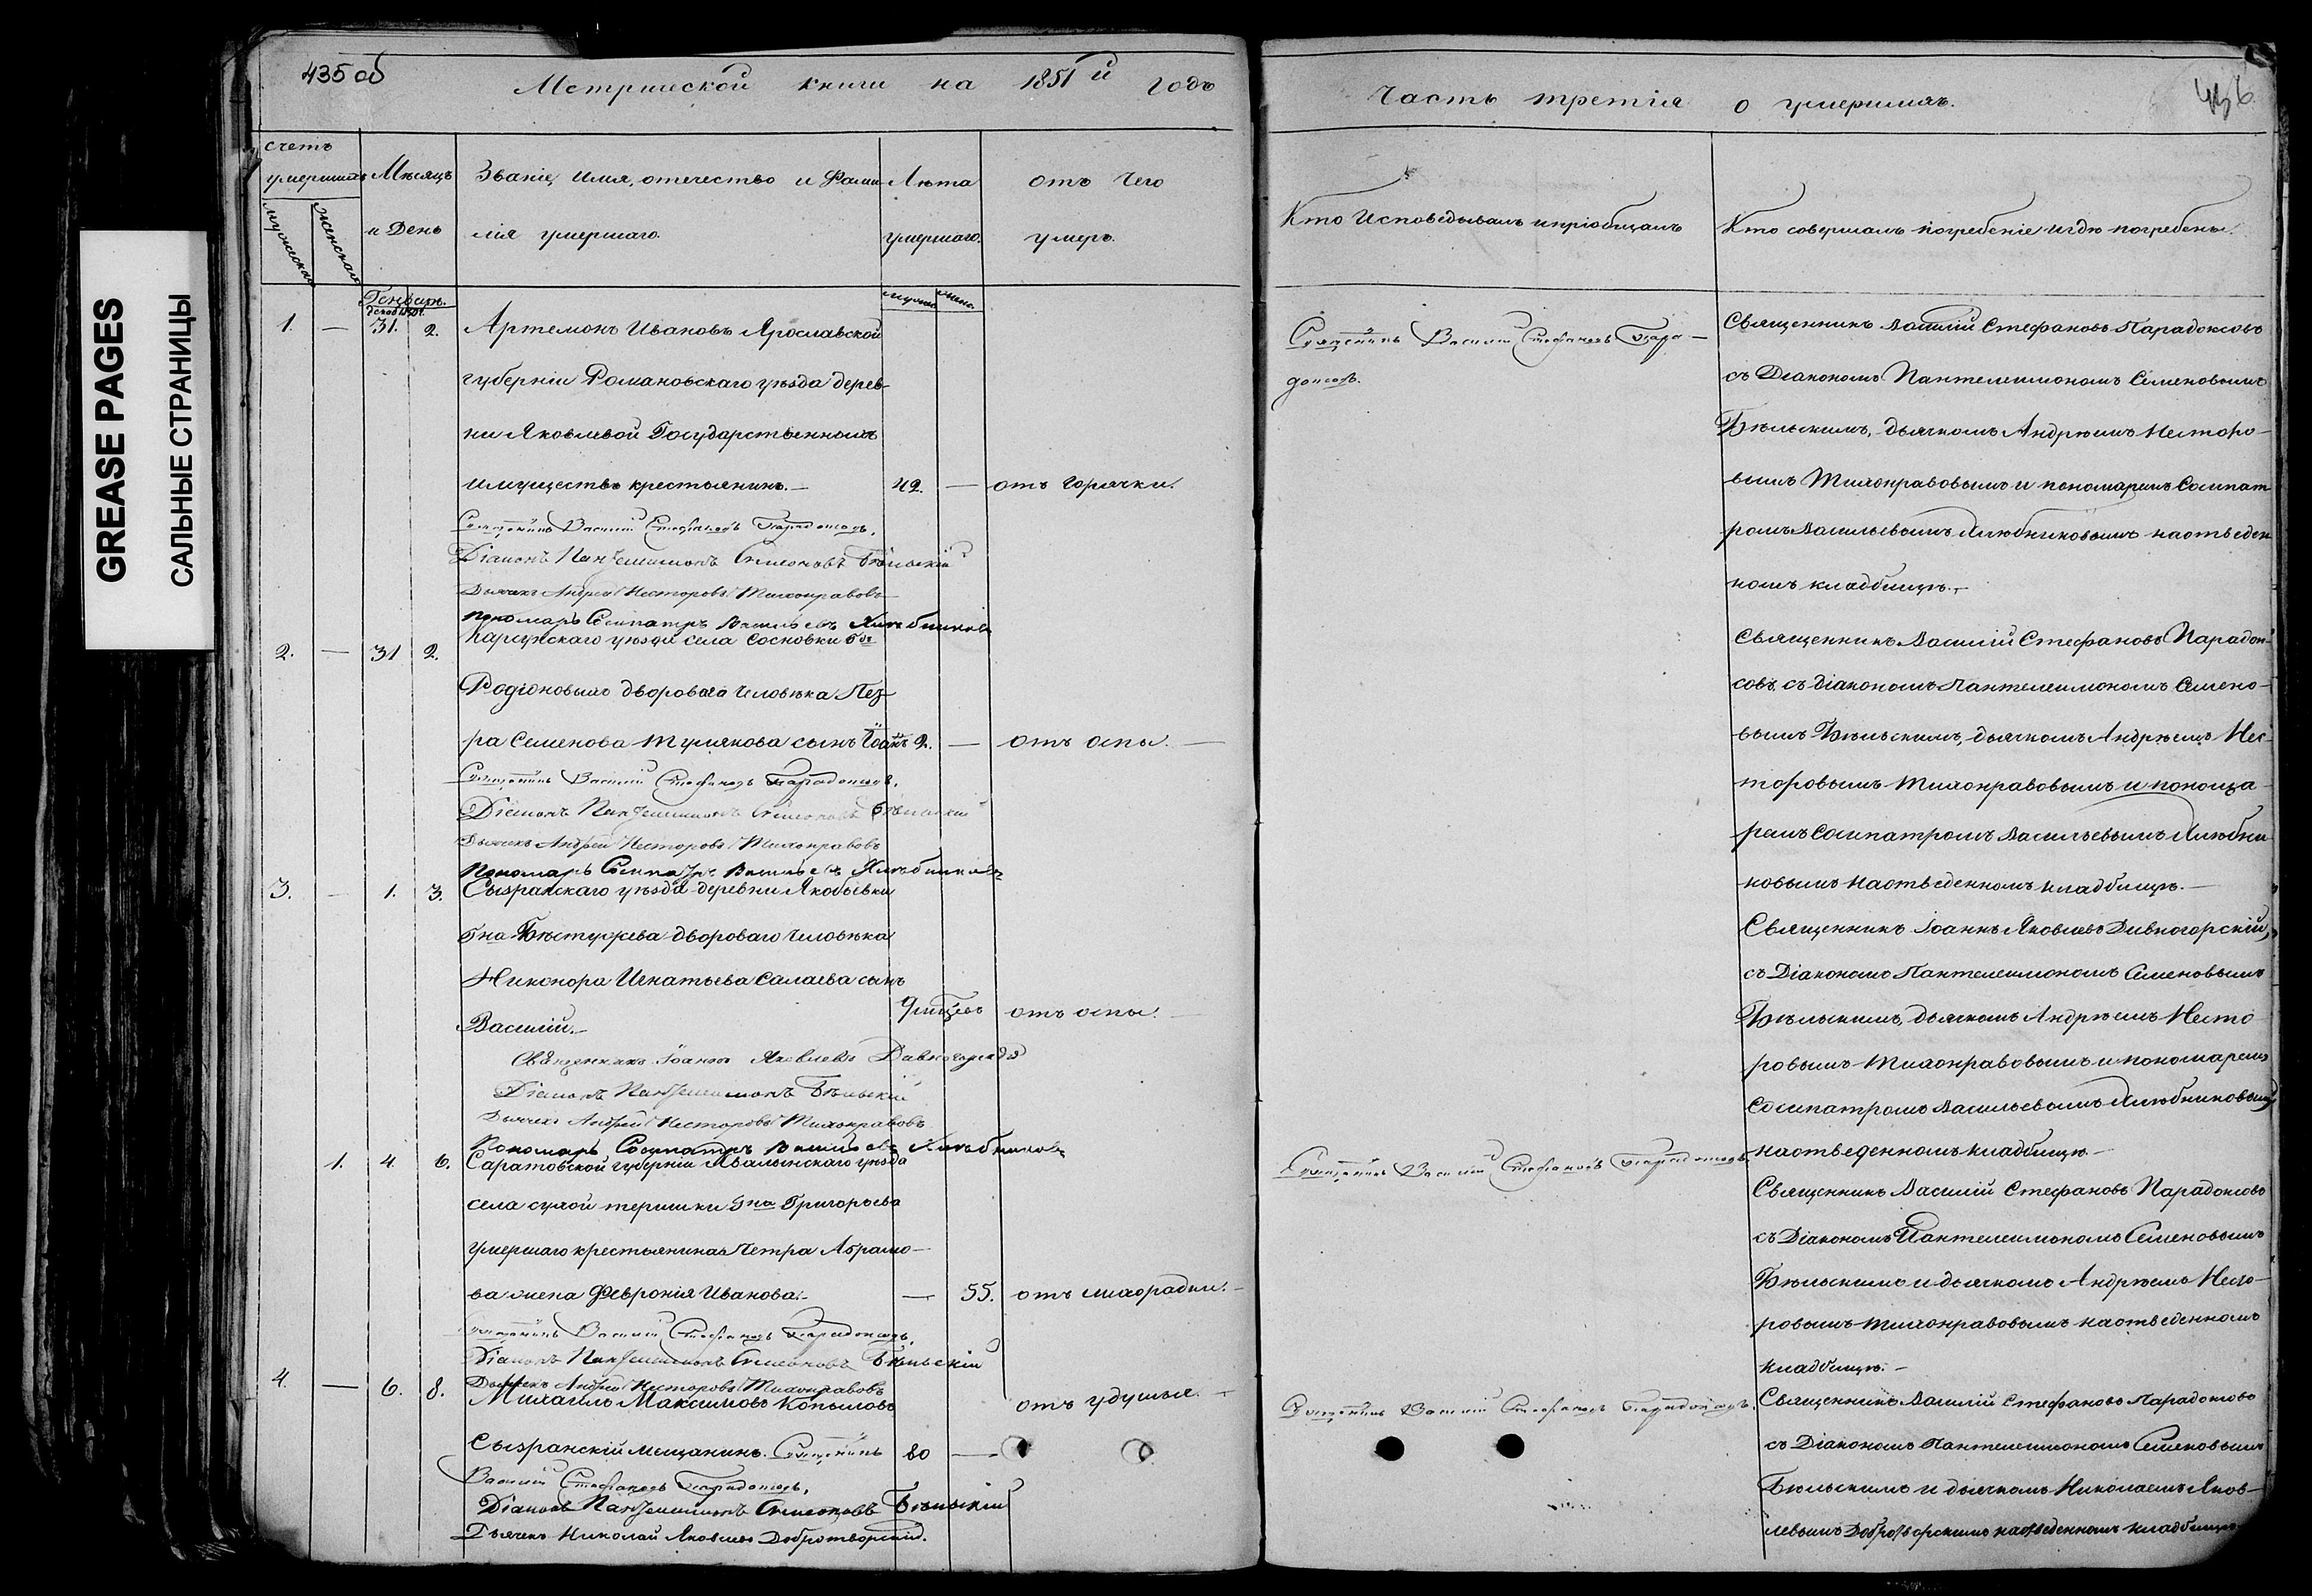 GREASE PAGES
САЛЬНЫЕ СТРАНИЦЫ
435 об
Метрической книги на 1851й годъ
счетъ умершихъ
мужескаго
женскаго
Мѣсяцъ и День
Званіе, имя, отечество и фамилія умершаго.
Лѣта умершаго.
отъ чего умеръ.
Генварь.
1. — 31. 2.
Артемонъ Ивановъ Ярославской
губерніи Романовскаго уѣзда дерев-
ни Яковлевой Государственныхъ
имуществъ крестьянинъ. — 42. — отъ горячки.
Священникъ Василій Стефановъ Парадоксовъ.
Діаконъ Пантелеимонъ Симеоновъ Бѣльскій
Дьячекъ Андрей Несторовъ Тихонравовъ
Пономарь Сосипатръ Васильевъ Хлѣбниковъ
2. — 31 2.
Карсунскаго уѣзда села Сосновки Гдѣ
Родіоновымъ дворового человѣка Пет-
ра Семенова Тумакова сынъ Іоаннъ 2. — отъ оспы. —
Священникъ Василій Стефановъ Парадоксовъ.
Діаконъ Пантелеимонъ Симеоновъ Бѣльскій
Дьячекъ Андрей Несторовъ Тихонравовъ
Пономарь Сосипатръ Васильевъ Хлѣбниковъ
3. — 1. 3.
Сызранскаго уѣзда деревни Якобьевки
Гна Бестужева двороваго человѣка
Никонора Игнатьева Салаева сынъ
Василій. — 9 мѣсяцевъ отъ оспы. —
Священникъ Іоаннъ Яковлевъ Дивногорскій
Діаконъ Пантелеимонъ Бѣльскій
Дьячекъ Андрей Несторовъ Тихонравовъ
Пономарь Сосипатръ Васильевъ Хлѣбниковъ
1. 4. 6.
Саратовской губерніи Хвалынскаго уѣзда
села сухой терешки Гна Григорьева
умершаго крестьянина Петра Абрамо-
ва жена Февронія Иванова. — — 55. отъ лихорадки. —
Священникъ Василій Стефановъ Парадоксовъ.
Діаконъ Пантелеимонъ Симеоновъ Бѣльскій
Дьячекъ Андрей Несторовъ Тихонравовъ
4. — 6. 8.
Михаилъ Максимовъ Копыловъ отъ удушья. —
Сызранскій мещанинъ. Священникъ 80 —
Василій Стефановъ Парадоксовъ.
Діаконъ Пантелеимонъ Симеоновъ Бѣльскій
Дьячекъ Николай Яковлевъ Добротворскій.
Часть третія о умершихъ.
436
Кто Исповѣдывалъ и пріобщалъ
Кто совершалъ погребеніе и гдѣ погребены.
Священникъ Василій Стефановъ Пара-
доксовъ.
Священникъ Василій Стефановъ Парадоксовъ
съ Діакономъ Пантелеимономъ Семеновымъ
Бѣльскимъ, дьячкомъ Андреемъ Несторо-
вымъ Тихонравовымъ и пономаремъ Сосипат
ромъ Васильевымъ Хлѣбниковымъ на отведен
номъ кладбищѣ. —
Священникъ Василій Стефановъ Парадок-
совъ съ діакономъ Пантелеимономъ Семено-
вымъ Бѣльскимъ, дьячкомъ Андреемъ Нес-
торовымъ Тихонравовымъ и понома-
ремъ Сосипатромъ Васильевымъ Хлѣбни-
ковымъ на отведенномъ кладбищѣ. —
Священникъ Іоаннъ Яковлевъ Дивногорскій,
съ Діакономъ Пантелеимономъ Семеновымъ
Бѣльскимъ, дьячкомъ Андреемъ Несто
ровымъ Тихонравовымъ и пономаремъ
Сосипатромъ Васильевымъ Хлѣбниковымъ
на отведенномъ кладбищѣ. —
Священникъ Василій Стефановъ Парадоксовъ.
Священникъ Василій Стефановъ Парадоксовъ
съ Діакономъ Пантелеимономъ Семеновымъ
Бѣльскимъ и дьячкомъ Андреемъ Несто-
ровымъ Тихонравовымъ на отведенномъ
кладбищѣ. —
Священникъ Василій Стефановъ Парадоксовъ.
Священникъ Василій Стефановъ Парадоксовъ
съ Діакономъ Пантелеимономъ Семеновымъ
Бѣльскимъ и дьячкомъ Николаемъ Яков-
левымъ Добротворскимъ на отведенномъ кладбищѣ